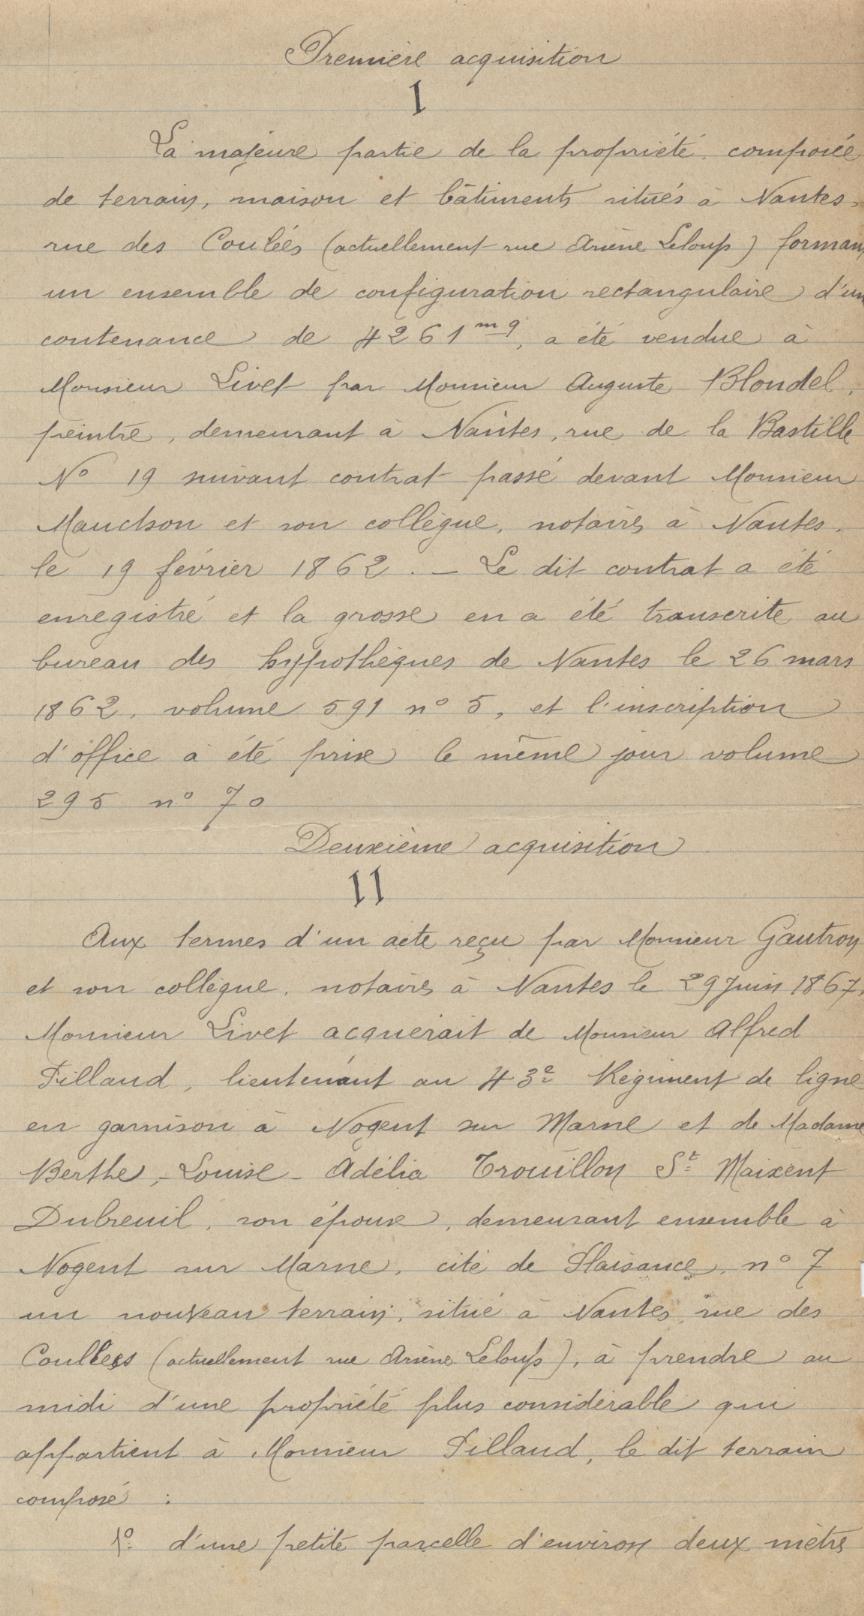 Première acquisition
I
La majeure partie de la propriété composée
de terrain, maison et bâtiments situés à Nantes,
rue des Coulées (actuellement rue Arsène Leloup) forman
un ensemble de configuration rectangulaire d'un
contenance de 4261 mq, a été vendue à
Monsieur Livet par Monsieur Auguste Blondel,
peintre, demeurant à Nantes, rue de la Bastille
N° 19 suivant contrat passé devant Monsieur
et son collègue, notaires à Nantes.
le 19 février 1862. — Le dit contrat a été
enregistré et la grosse en a été transcrite au
bureau des hypothèques de Nantes le 26 mars
1862, volume 591 n° 5, et l'inscription
d'office a été prise le même jour volume
295 n° 70
Deuxième acquisition
II
Aux termes d'un acte reçu par Monsieur Gautron
et son collègue, notaires à Nantes le 29 Juin 1867,
Monsieur Livet acquérait de Monsieur Alfred
Fillaud, lieutenant au 43e Régiment de ligne
en garnison à Nogent sur Marne et de Madame
Berthe, - Louise - Adélia Trouillon St Maixent
Dubreuil, son épouse, demeurant ensemble à
Nogent sur Marne, cité de Plaisance, n° 7
un nouveau terrain, situé à Nantes, rue des
Coulées (actuellement rue Arsène Leloup), à prendre au
midi d'une propriété plus considérable qui
appartient à Monsieur Fillaud, le dit terrain
composé :
1° d'une petite parcelle d'environ deux mètres